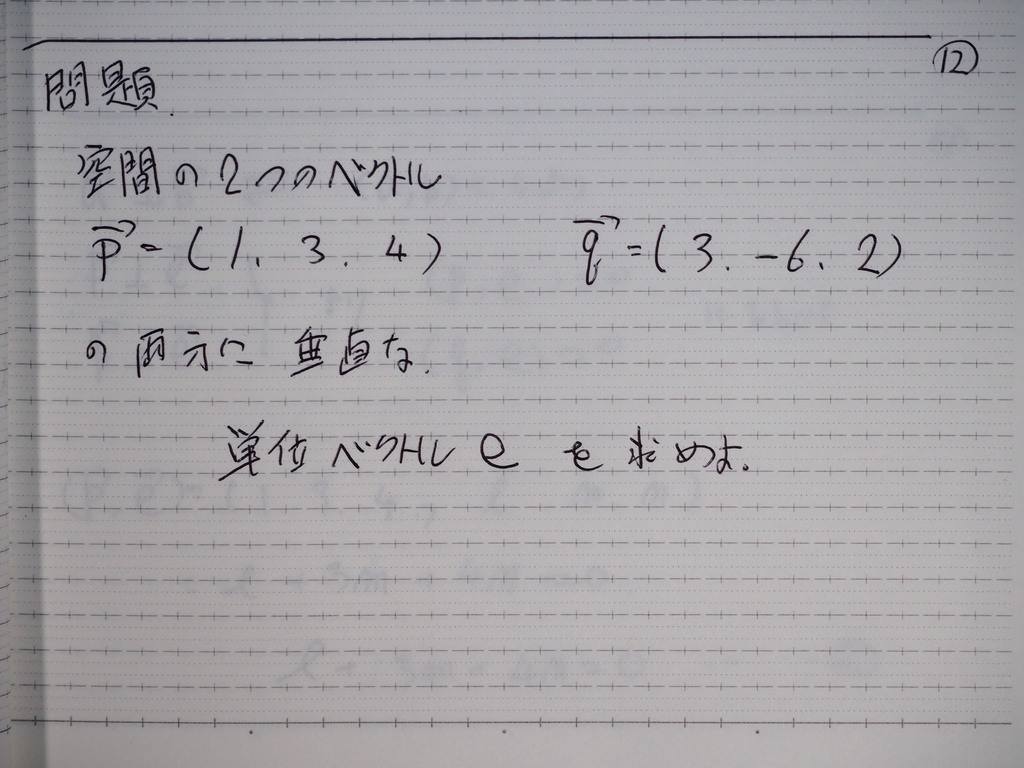 ⑫
問題.
空間の2つのベクトル
p⃗ = (1, 3, 4) q⃗ = (3, -6, 2)
の両方に 垂直な,
単位ベクトル e を求めよ.